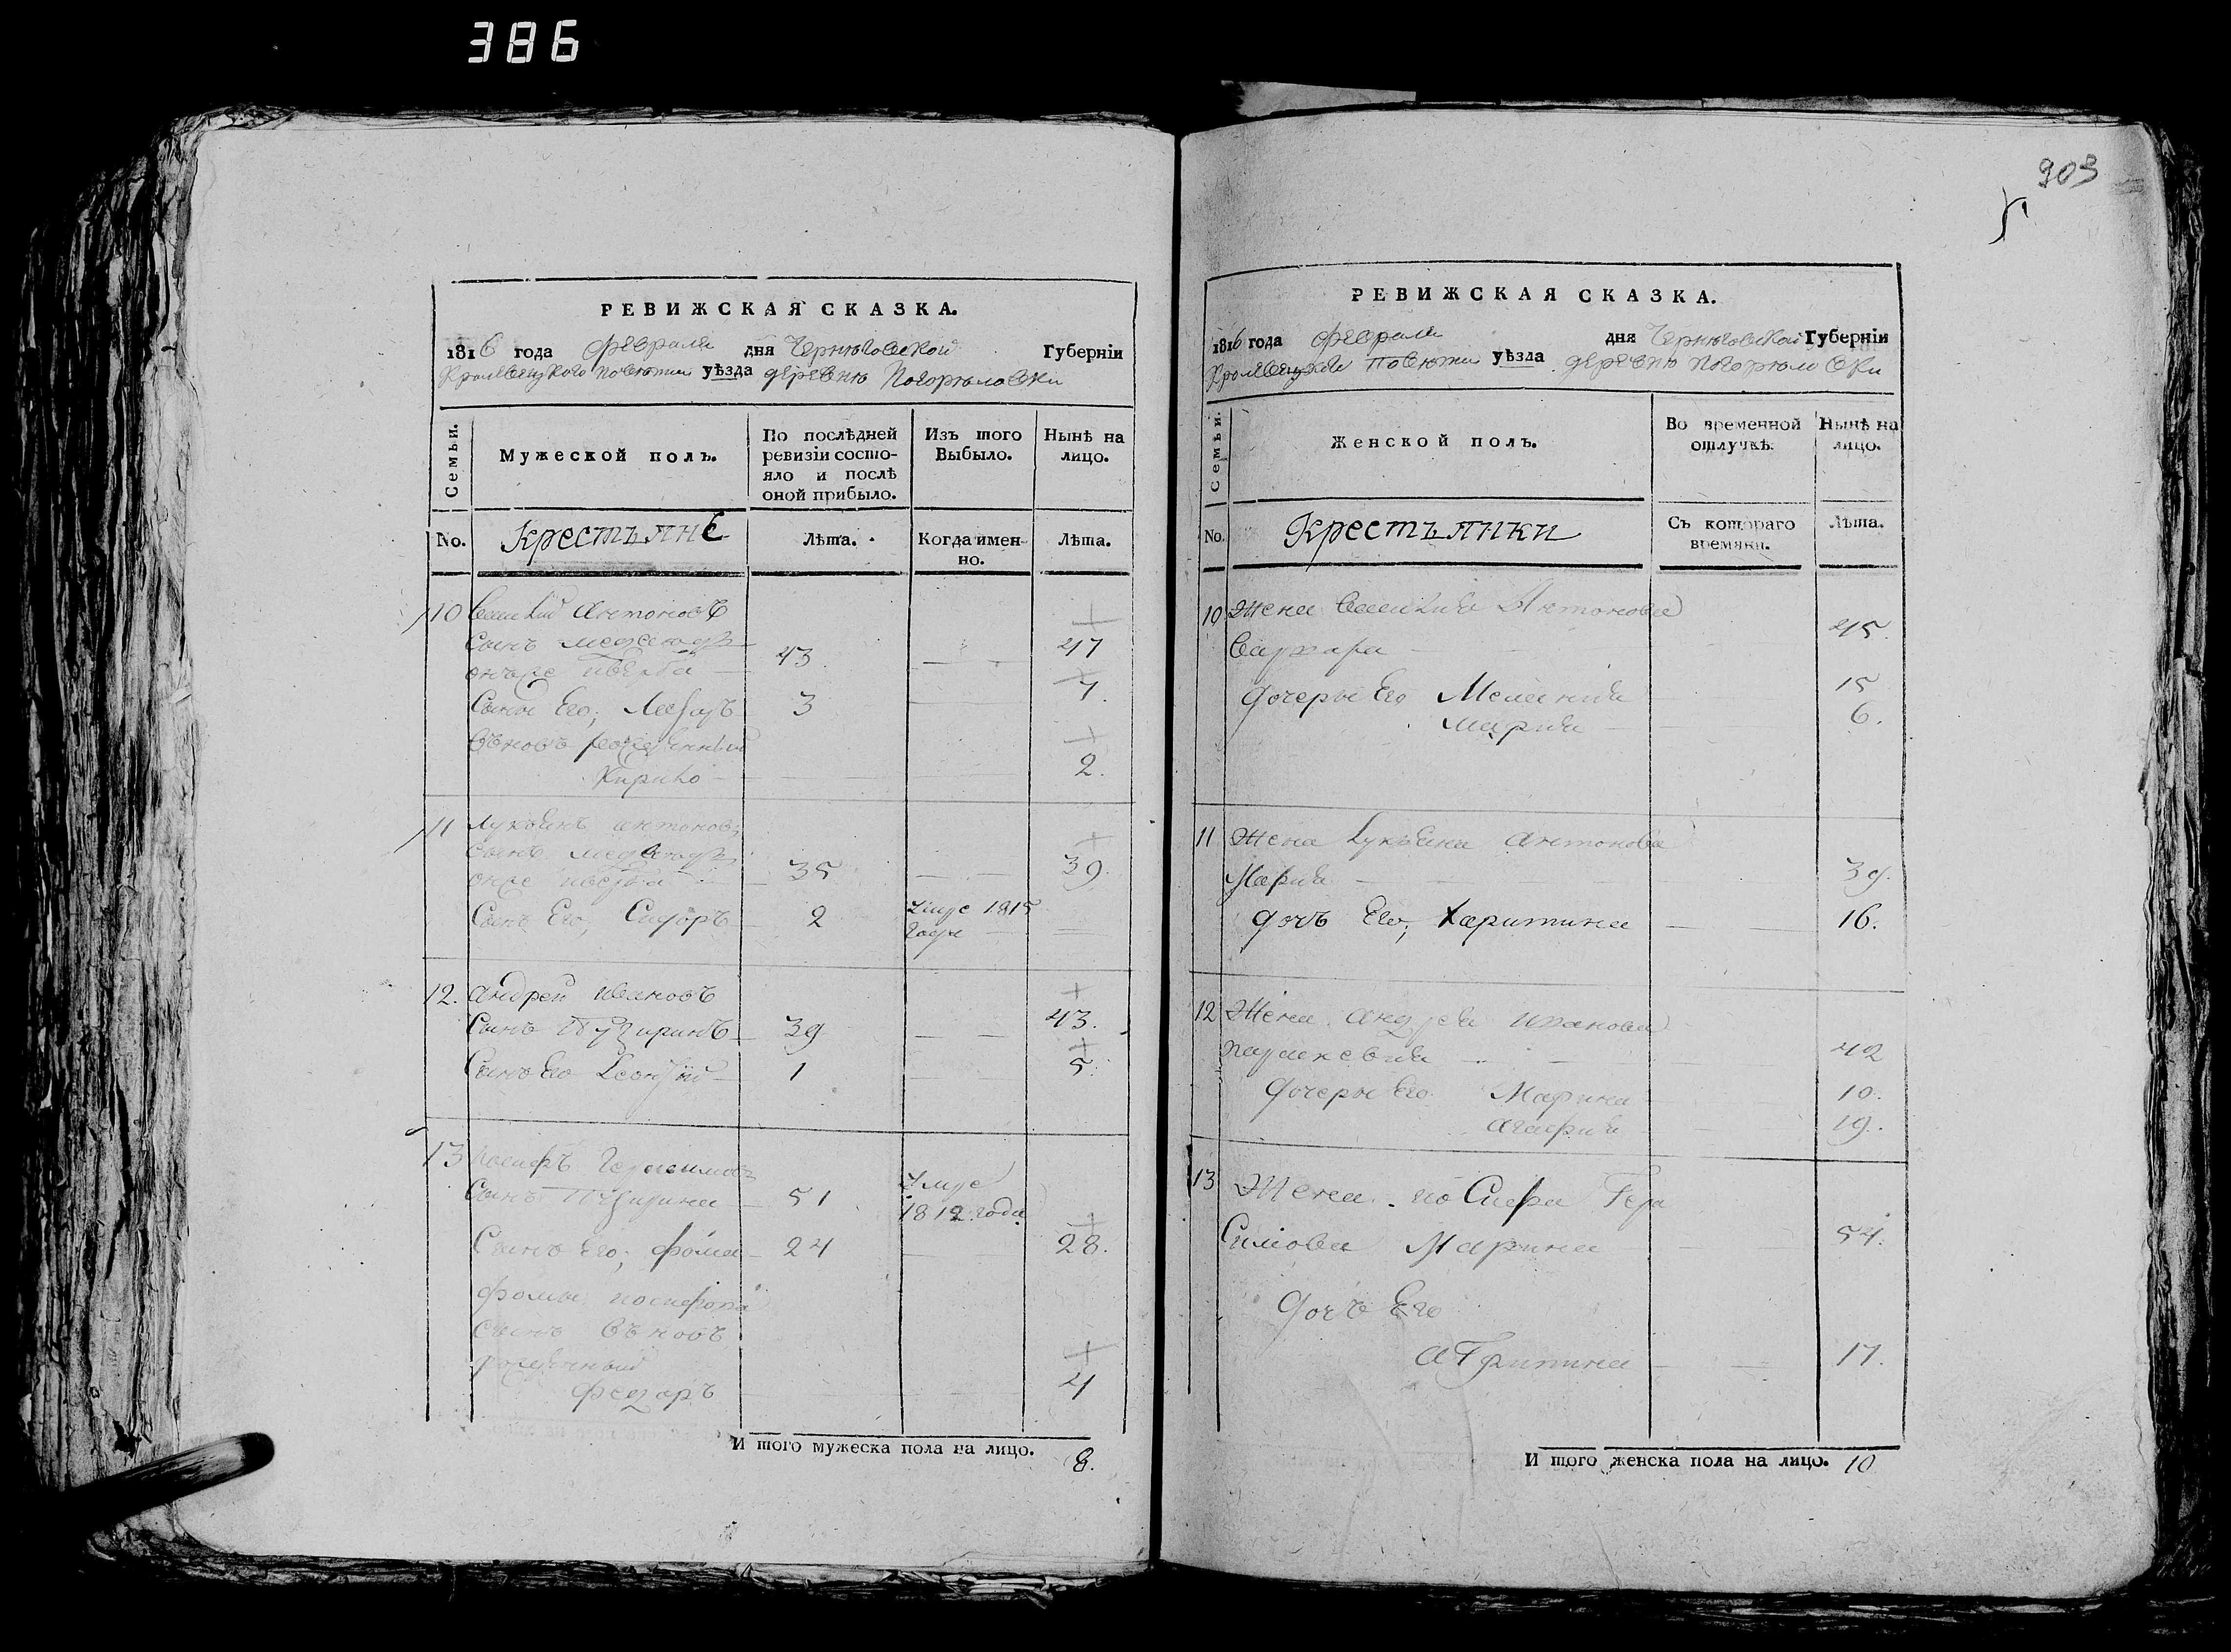 386
903
РЕВИЖСКАЯ СКАЗКА.
1816 года февраля дня Черниговской Губерніи
Кролевецкого повѣта уѣзда деревнѣ Погорѣловки
Семьи.
Мужеской полъ.
По послѣдней
ревизіи состо-
яло и послѣ
оной прибыло.
Изъ того
Выбыло.
Нынѣ на
лицо.
No.
Крестъяне
Лѣта.
Когда имен-
но.
Лѣта.
10 антоновъ
Сынъ 43 47
Сынъ Его, 3 7.
вновъ рожденный
Кирило 2.
11 Лукьянъ антоновъ
сынъ
35 39.
Сынъ Его, Сидоръ 2 1815
года
12. андрей ивановъ
Сынъ Пузиринъ 39 43.
Сынъ Его Леонтій 1 5.
13 иосифъ Герасимовъ
Сынъ 51 умре
1812 года
Сынъ Его, фома 24 28.
фомы иосифова
сынъ вновъ
рожденный
федоръ 4
И того мужеска пола на лицо. 8.
РЕВИЖСКАЯ СКАЗКА.
1816 года февраля дня Черниговской Губерніи
повѣта уѣзда деревнѣ Погорѣловки
Семьи.
Женской полъ.
Во временной
отлучкѣ.
Нынѣ на
лицо.
No.
Крестъянки
Съ котораго
времяни.
Лѣта.
10 Жена Антонова
Варвара 45.
дочеры Его Меланія 15
Марія 6.
11 Жена Лукъяна антонова
Марія 39.
дочъ Его, Харитина 16.
12 Жена андрея иванова
параскевія 42
дочеры Его Марина 10.
агафия 19.
13 Жена иосифа Гера
симова Марина 54.
дочъ Его
агрипина 17.
И того женска пола на лицо. 10